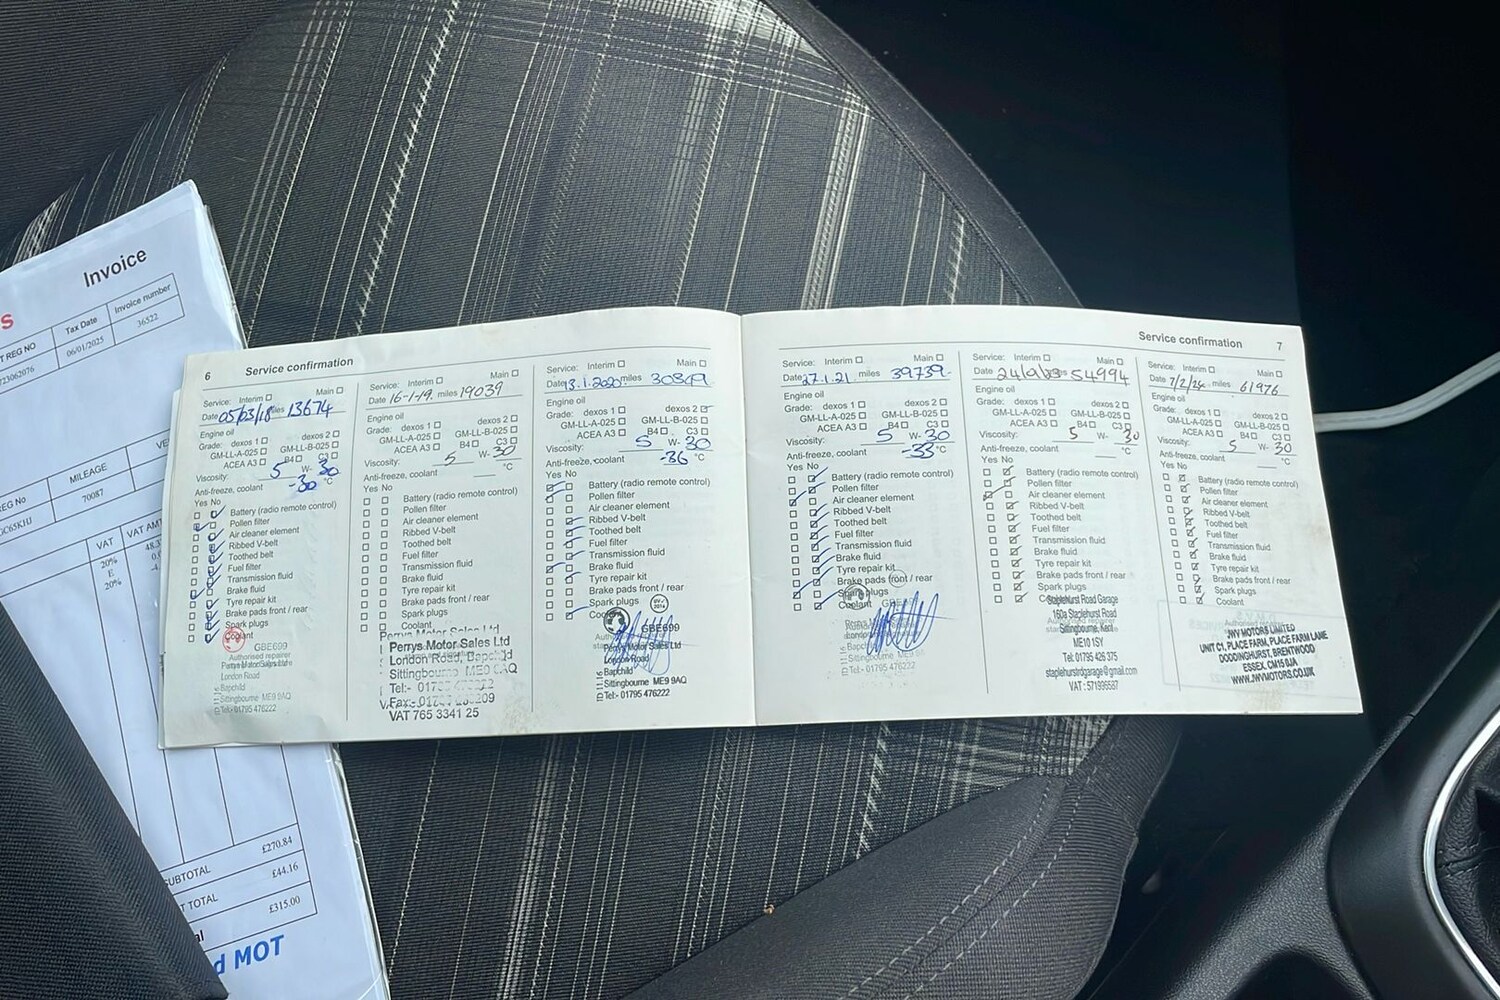 Invoice
s
T REG NO
Tax Date
Invoice number
06/01/2025
36522
723062076
MILEAGE
VE
REG No
70087
GC65KHJ
VAT
VAT AMT
20%
E
20%
SUBTOTAL
£270.84
T TOTAL
£44.16
al
£315.00
d MOT
6 Service confirmation
Service: Interim Main
Date 05/03/18 miles 13674
Engine oil
Grade: dexos 1 dexos 2
GM-LL-A-025 GM-LL-B-025
ACEA A3 B4 C3
Viscosity: 5 W- 30
Anti-freeze, coolant -30 °C
Yes No
Battery (radio remote control)
Pollen filter
Air cleaner element
Ribbed V-belt
Toothed belt
Fuel filter
Transmission fluid
Brake fluid
Tyre repair kit
Brake pads front / rear
Spark plugs
Coolant
GBE699
Authorised repairer
Perrys Motor Sales Ltd
London Road
Bapchild
Sittingbourne ME9 9AQ
Tel:- 01795 476222
Service: Interim Main
Date 16-1-19 miles 19039
Engine oil
Grade: dexos 1 dexos 2
GM-LL-A-025 GM-LL-B-025
ACEA A3 B4 C3
Viscosity: 5 W- 30
Anti-freeze, coolant °C
Yes No
Battery (radio remote control)
Pollen filter
Air cleaner element
Ribbed V-belt
Toothed belt
Fuel filter
Transmission fluid
Brake fluid
Tyre repair kit
Brake pads front / rear
Spark plugs
Coolant
Perrys Motor Sales Ltd
London Road, Bapchild
Sittingbourne ME9 9AQ
Tel:-
Fax:-
VAT 765 3341 25
Service: Interim Main
Date 13.1.2020 miles 30849
Engine oil
Grade: dexos 1 dexos 2
GM-LL-A-025 GM-LL-B-025
ACEA A3 B4 C3
Viscosity: 5 W- 30
Anti-freeze, coolant -36 °C
Yes No
Battery (radio remote control)
Pollen filter
Air cleaner element
Ribbed V-belt
Toothed belt
Fuel filter
Transmission fluid
Brake fluid
Tyre repair kit
Brake pads front / rear
Spark plugs
Coolant
GBE699
Perrys Motor Sales Ltd
London Road
Bapchild
Sittingbourne ME9 9AQ
Tel:- 01795 476222
Service confirmation 7
Service: Interim Main
Date 27.1.21 miles 39739
Engine oil
Grade: dexos 1 dexos 2
GM-LL-A-025 GM-LL-B-025
ACEA A3 B4 C3
Viscosity: 5 W- 30
Anti-freeze, coolant -33 °C
Yes No
Battery (radio remote control)
Pollen filter
Air cleaner element
Ribbed V-belt
Toothed belt
Fuel filter
Transmission fluid
Brake fluid
Tyre repair kit
Brake pads front / rear
Spark plugs
Coolant
Sittingbourne
Tel:- 01795 476222
Service: Interim Main
Date miles 54994
Engine oil
Grade: dexos 1 dexos 2
GM-LL-A-025 GM-LL-B-025
ACEA A3 B4 C3
Viscosity: 5 W- 30
Anti-freeze, coolant °C
Yes No
Battery (radio remote control)
Pollen filter
Air cleaner element
Ribbed V-belt
Toothed belt
Fuel filter
Transmission fluid
Brake fluid
Tyre repair kit
Brake pads front / rear
Spark plugs
Coolant
Staplehurst Road Garage
160a Staplehurst Road
Sittingbourne, Kent
ME10 1SY
Tel: 01795 426 375
staplehurstrdgarage@gmail.com
VAT : 571996587
Service: Interim Main
Date 7/2/24 miles 61976
Engine oil
Grade: dexos 1 dexos 2
GM-LL-A-025 GM-LL-B-025
ACEA A3 B4 C3
Viscosity: 5 W- 30
Anti-freeze, coolant °C
Yes No
Battery (radio remote control)
Pollen filter
Air cleaner element
Ribbed V-belt
Toothed belt
Fuel filter
Transmission fluid
Brake fluid
Tyre repair kit
Brake pads front / rear
Spark plugs
Coolant
JWV MOTORS LIMITED
UNIT C1, PLACE FARM, PLACE FARM LANE
DODDINGHURST, BRENTWOOD
ESSEX. CM15 0JA
WWW.JWVMOTORS.CO.UK